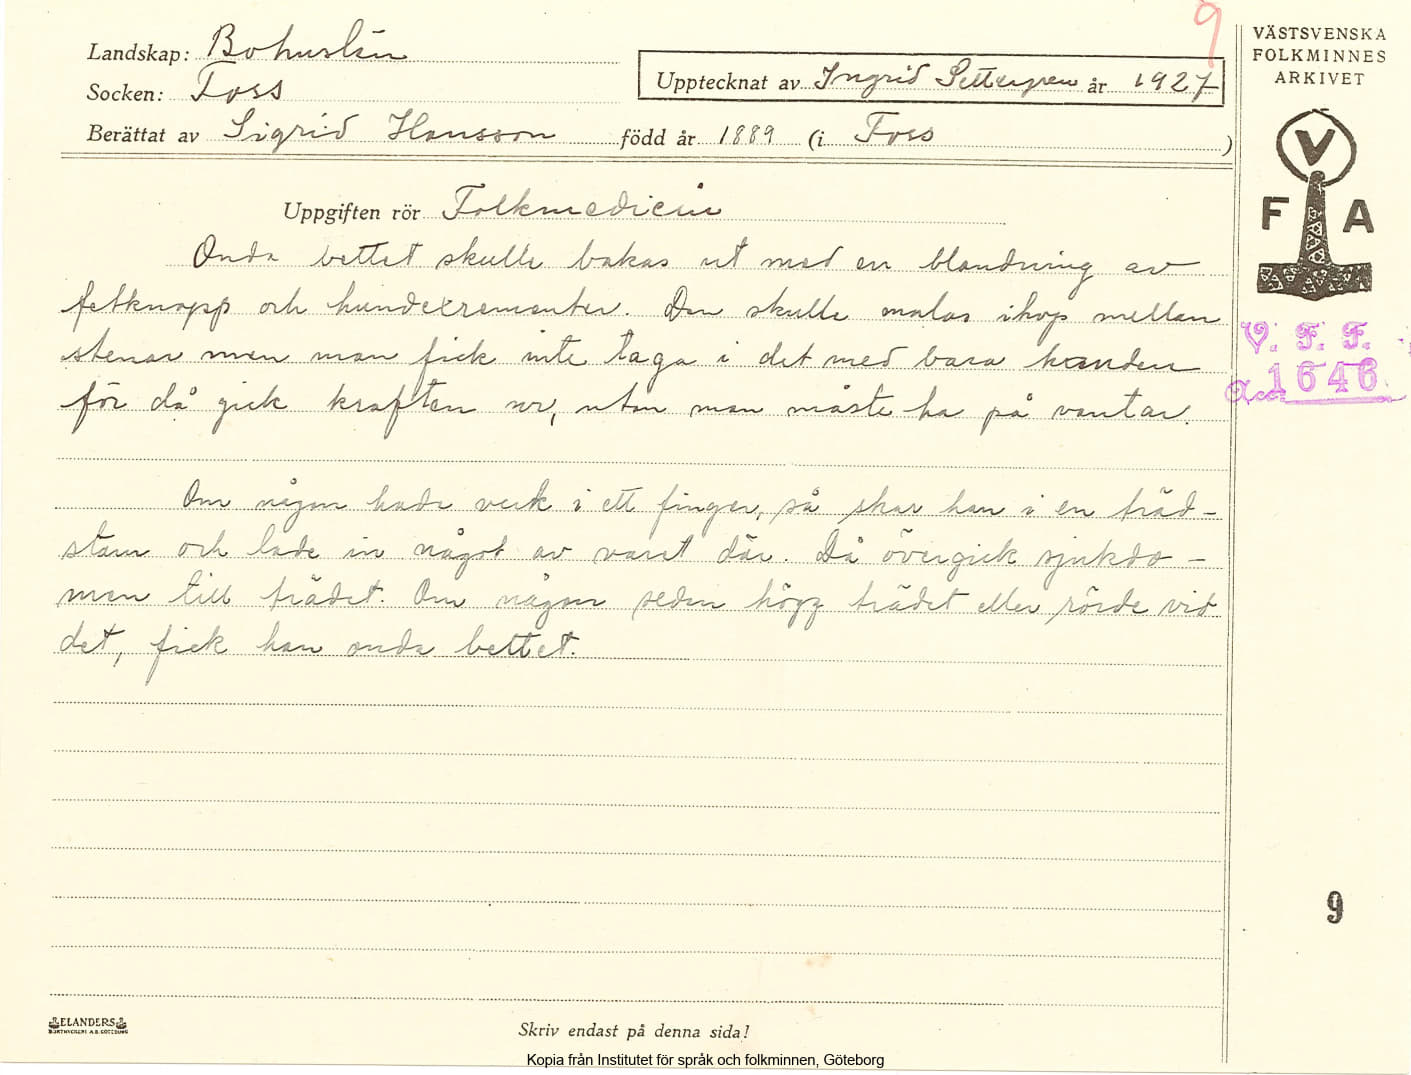 9
Landskap: Bohuslän
Socken: Foss
Upptecknat av Ingrid Pettersson år 1927
Berättat av Sigrid Hansson född år 1889 (i Foss )
VÄSTSVENSKA
FOLKMINNES
ARKIVET
V
F A
Uppgiften rör Folkmedicin
Onda bettet skulle bakas ut med en blandning av
fetknopp och hundexrementer. Den skulle malas ihop mellan
stenar men man fick inte taga i det med bara handen
för då gick kraften ur, utan man måste ha på vantar.
V. F. F.
Acc. 1646.
Om någon hade verk i ett finger, så skar han i en träd-
stam och lade in något av varet där. Då övergick sjukdo-
men till trädet. Om någon sedan högg trädet eller rörde vid
det, fick han onda bettet.
9
ELANDERS
BOKTRYCKERI A.B. GÖTEBORG
Skriv endast på denna sida!
Kopia från Institutet för språk och folkminnen, Göteborg